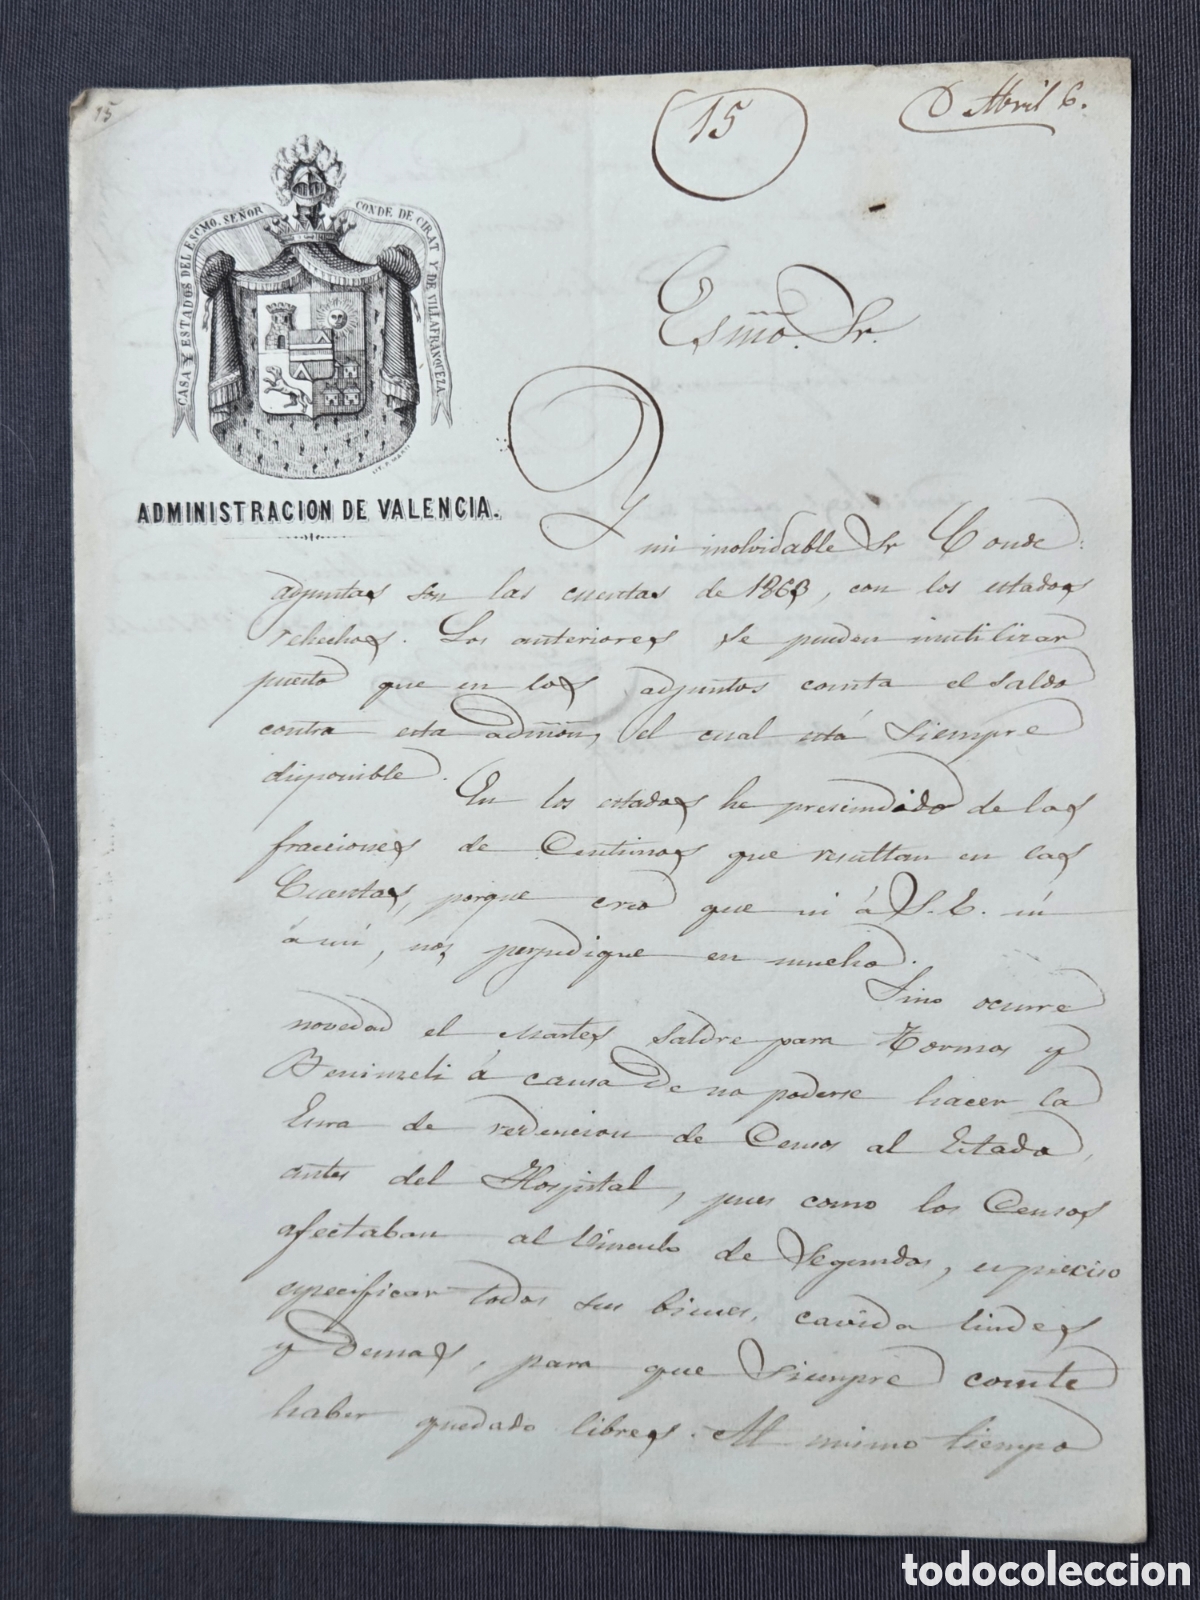 15
15
D Abril 6.
CASA Y ESTADOS DEL ESCMO. SEÑOR CONDE DE CIRAT Y DE VILLAFRANQUEZA
LIT. P. MARTI
ADMINISTRACION DE VALENCIA.
Esmo. Sr.
Y mi inolvidable Sr Conde:
adjuntas son las cuentas de 1863, con los estados
rehechos. Los anteriores se pueden inutilizar
puesto que en los adjuntos consta el saldo
contra esta admñon, el cual está siempre
disponible.
En los estados he prescindido de las
fracciones de Centimos que resultan en las
Cuentas, porque creo que ni á S. E. ni
á mi, nos perjudique en mucho.
Sino ocurre
novedad el Martes saldre para Tormos y
Benimeli á causa de no poderse hacer la
Esra de redencion de Censos al Estado,
antes del Hospital, pues como los Censos
afectaban al Vinculo de Segundos, es preciso
especificar todos sus bienes, cavida lindes
y demas, para que siempre conste
haber quedado libres. Al mismo tiempo
todocoleccion